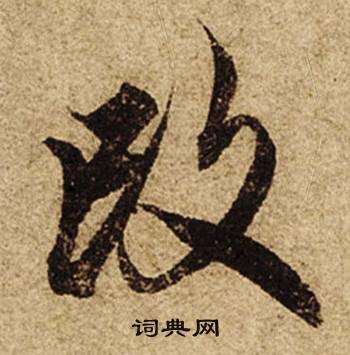 改
词典网